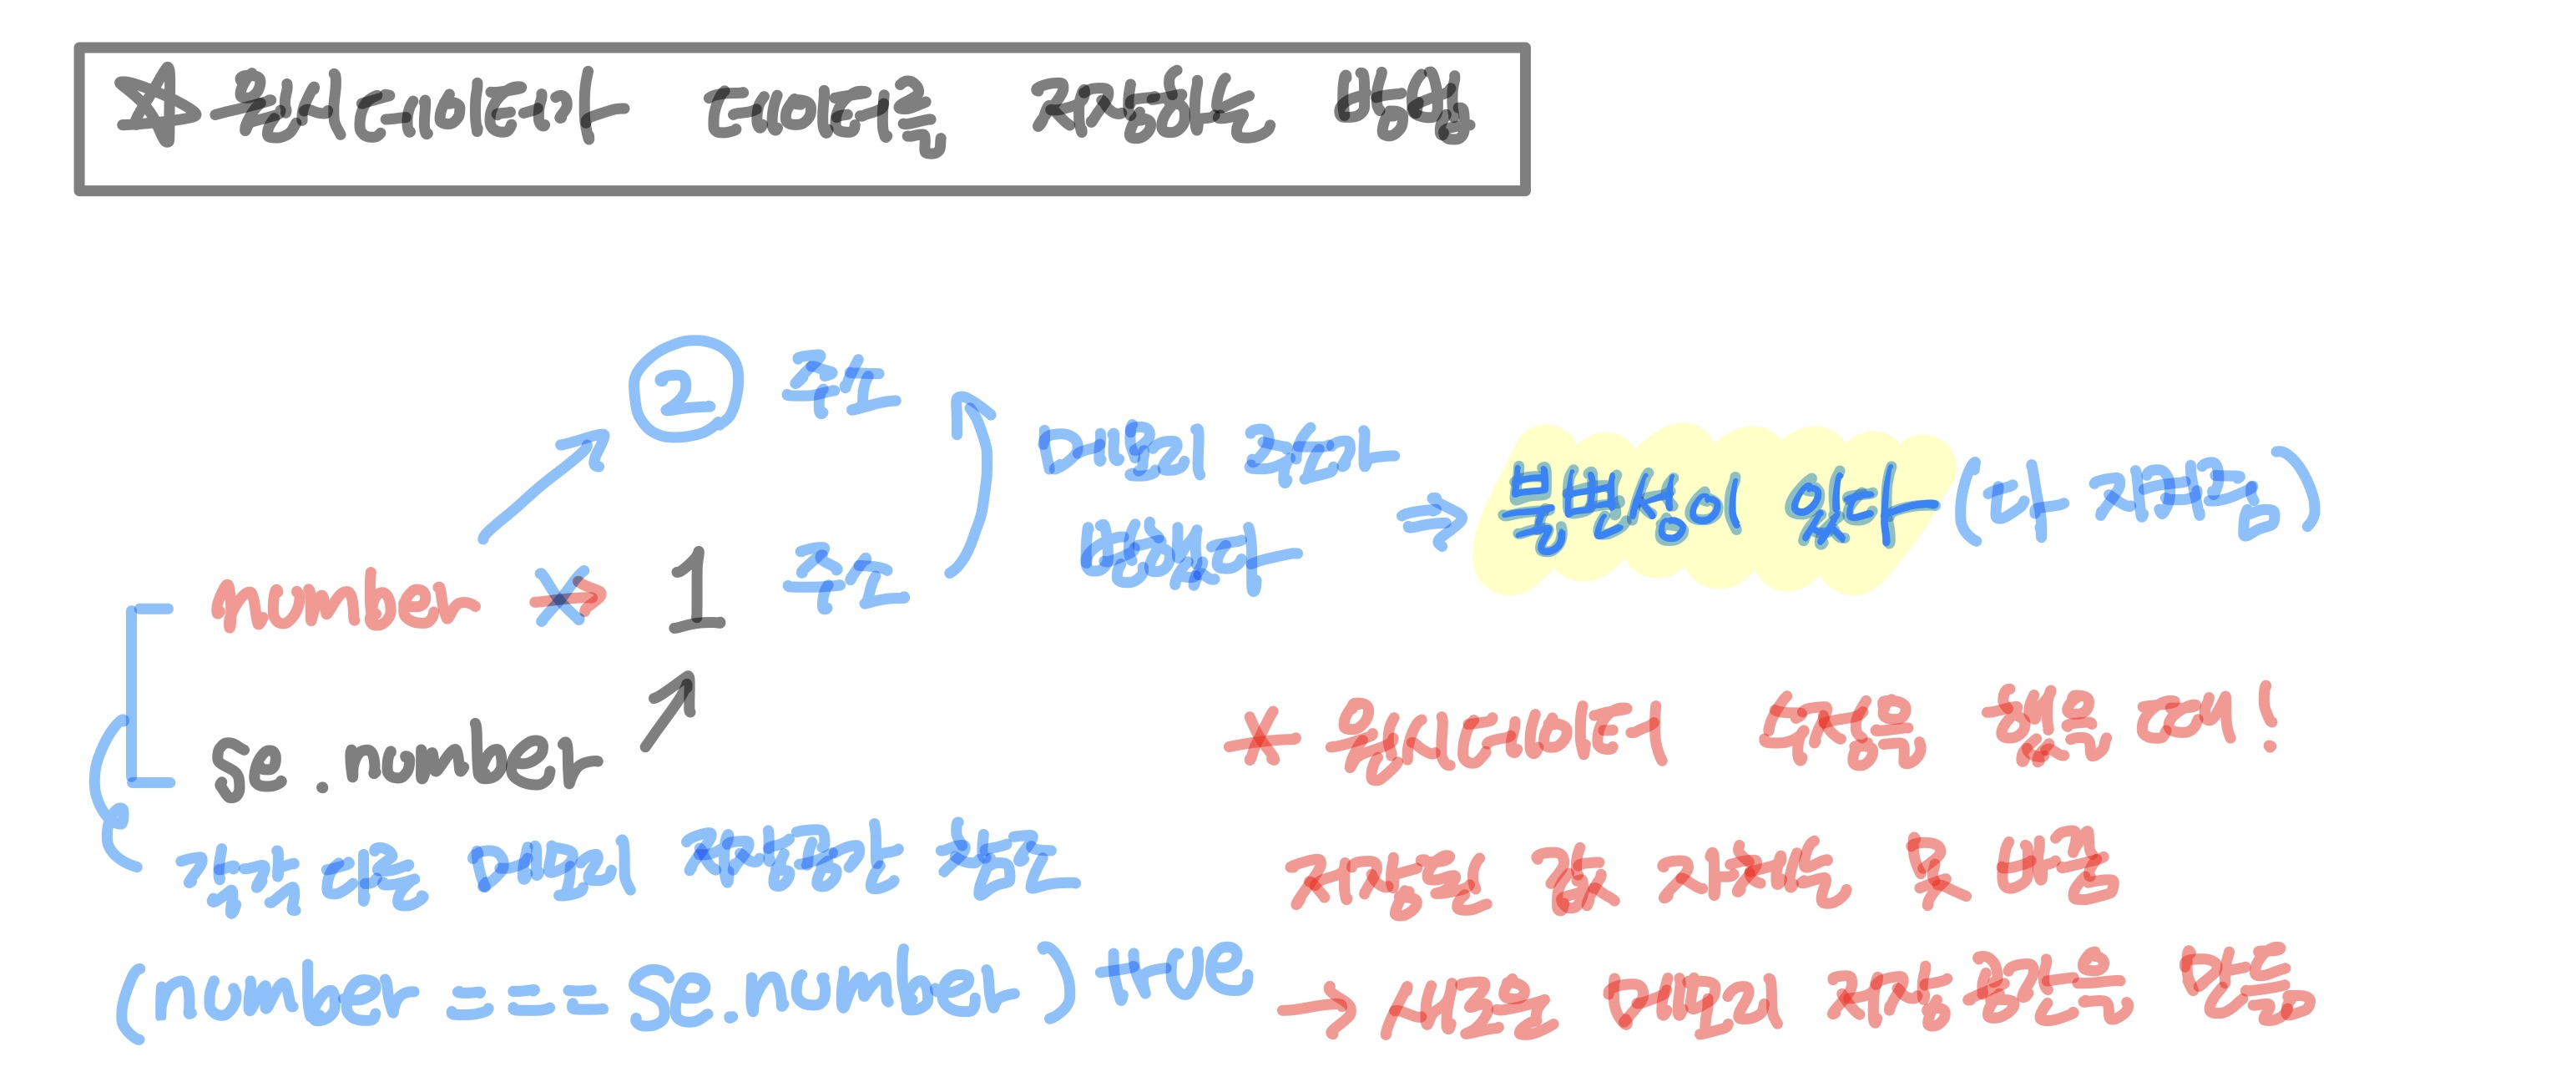 ☆ 원시데이터가 데이터를 저장하는 방법
② 주소
메모리 주소가
변했다
⇒ 불변성이 있다 (다 지켜짐)
number ⇒ 1 주소
se.number
* 원시데이터 수정을 했을 때!
각각 다른 메모리 저장공간 참조
저장된 값 자체는 못 바꿈
(number ==== se.number) true
→ 새로운 메모리 저장 공간을 만듦